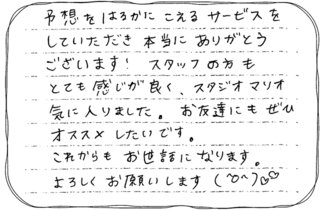 予想をはるかにこえるサービスを
していただき本当にありがとう
ございます！スタッフの方も
とても感じが良く、スタジオマリオ
気に入りました。お友達にもぜひ
オススメしたいです。
これからもお世話になります。
よろしくお願いします(^o^)♡♡